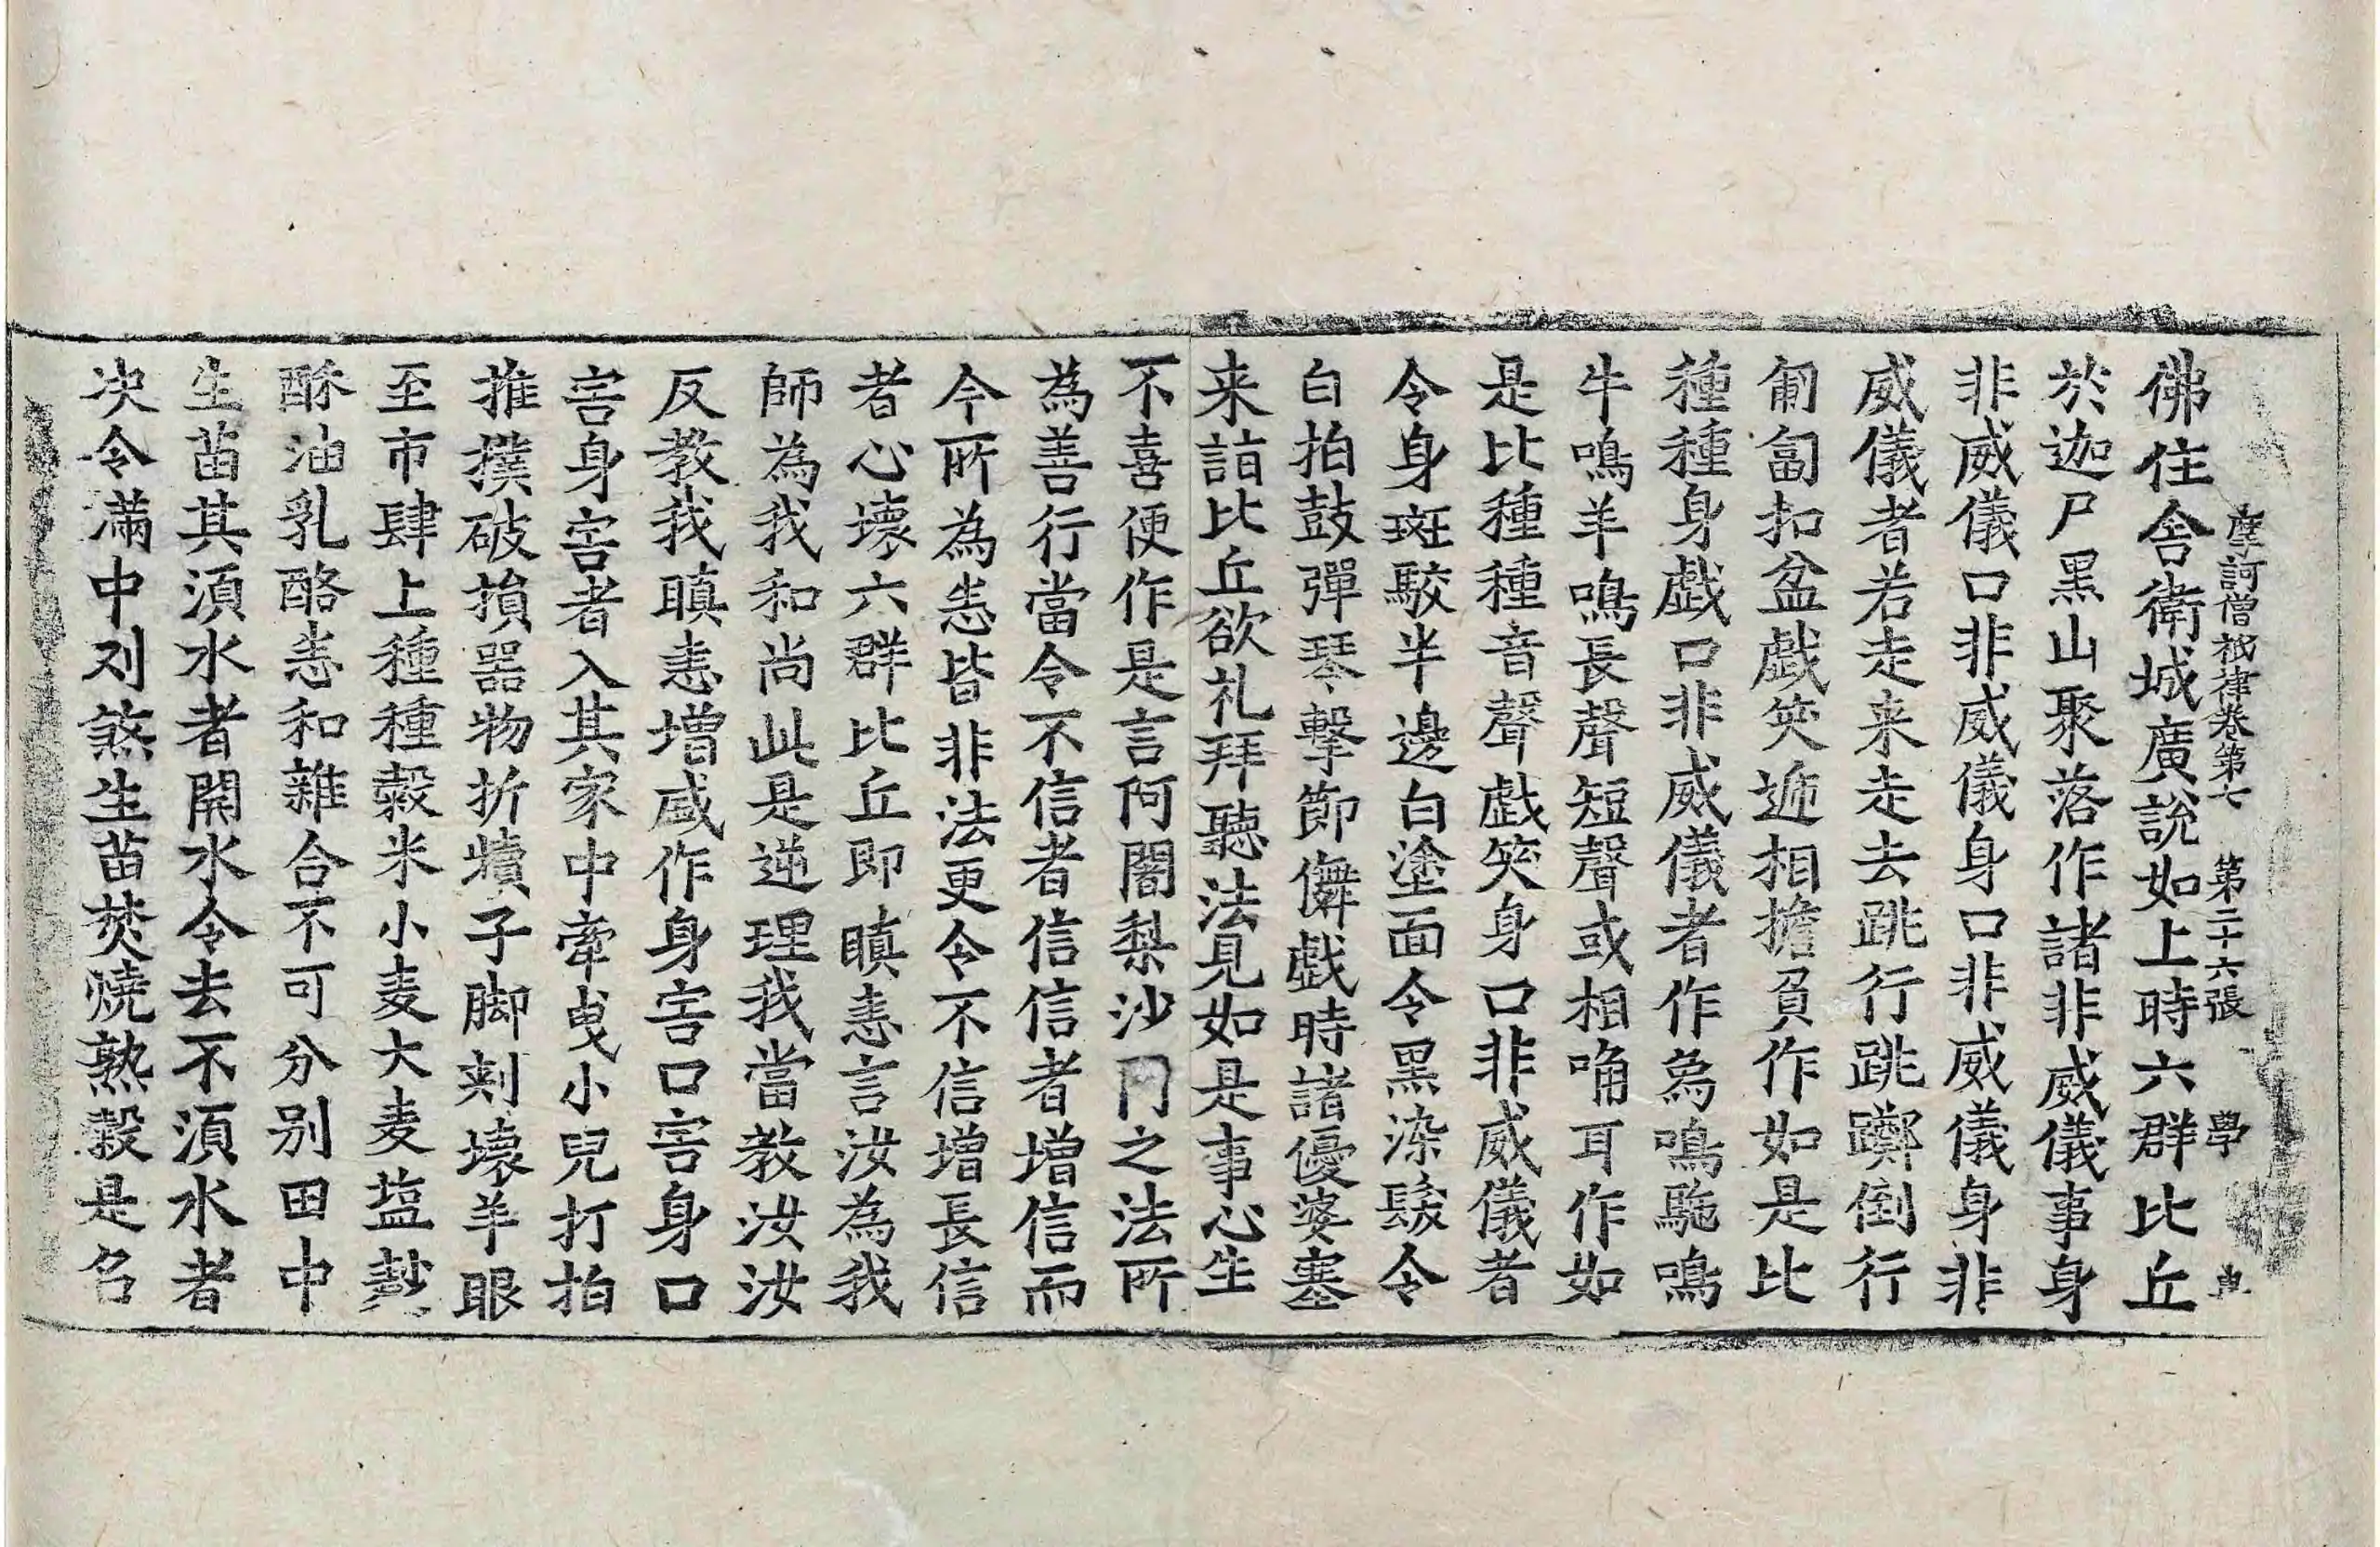 摩訶僧祇律卷第七 第二十六張 學
佛住舎衛城廣説如上時六群比丘
於迦尸黒山聚落作諸非威儀事身
非威儀口非威儀身口非威儀身非
威儀者若走来走去跳行跳躑倒行
匍匐扣盆戯笑逓相擔負作如是比
種種身戯口非威儀者作烏鳴駞鳴
牛鳴羊鳴長聲短聲或相唃耳作如
是比種種音聲戯笑身口非威儀者
令身斑駮半邊白塗面令黒染髮令
白拍鼓彈琴擊節儛戯時諸優婆塞
来詣比丘欲礼拜聽法見如是事心生
不喜便作是言阿闍梨沙門之法所
為善行當令不信者信信者増信而
今所為悉皆非法更令不信増長信
者心壊六群比丘即瞋恚言汝為我
師為我和尚此是逆理我當教汝汝
反教我瞋恚増盛作身害口害身口
害身害者入其家中牽曳小兒打拍
推撲破損器物折犢子脚刾壊羊眼
至市肆上種種穀米小麦大麦塩麨
酥油乳酪悉和雜合不可分別田中
生苗其湏水者開水令去不湏水者
决令滿中刈煞生苗焚燒熟穀是名